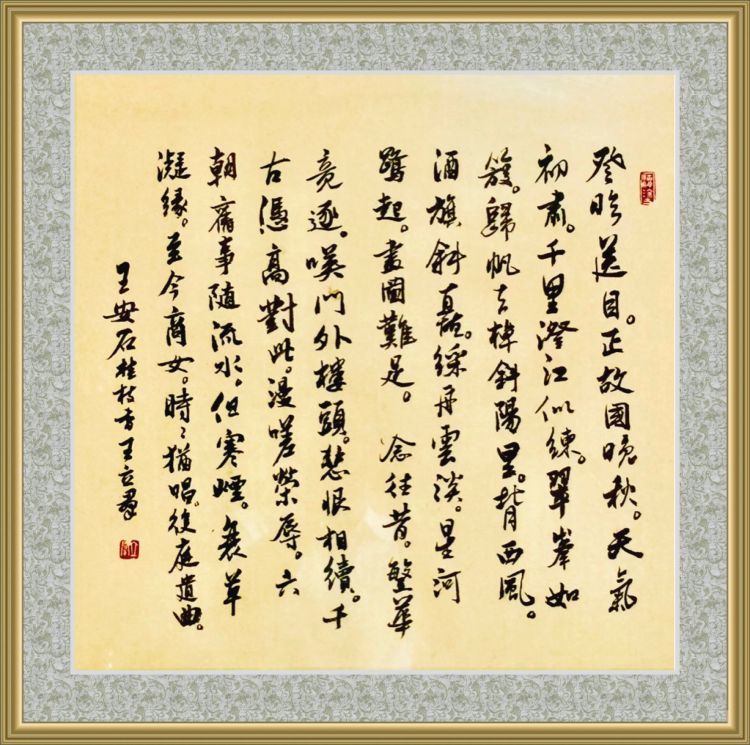 登临送目。正故國晚秋。天氣
初肅。千里澄江似練。翠峯如
簇。歸帆去棹斜陽里。背西風。
酒旗斜矗。綵舟雲淡。星河
鷺起。畫圖難足。念往昔。繁華
竞逐。嘆門外樓頭。悲恨相續。千
古憑高對此。漫嗟榮辱。六
朝舊事隨流水。但寒煙。衰草
凝綠。至今商女。時〻猶唱。後庭遺曲。
王安石桂枝香王立群